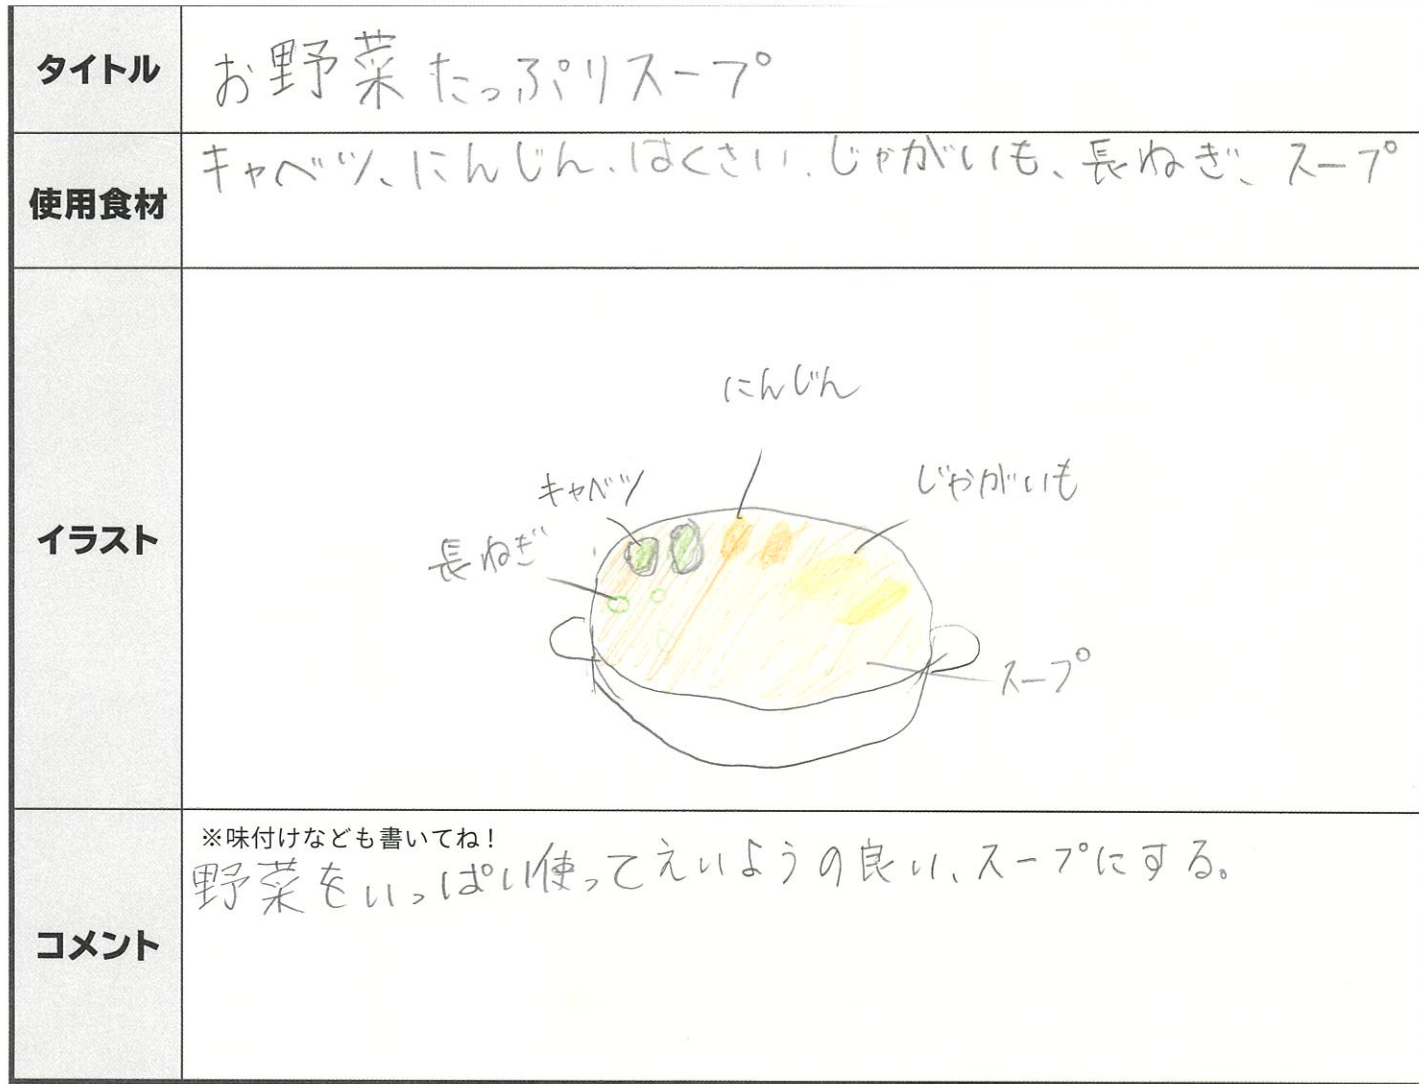 タイトル
お野菜たっぷりスープ
使用食材
キャベツ、にんじん、はくさい、じゃがいも、長ねぎ、スープ
イラスト
にんじん
キャベツ
じゃがいも
長ねぎ
スープ
コメント
※味付けなども書いてね！
野菜をいっぱい使ってえいようの良い、スープにする。